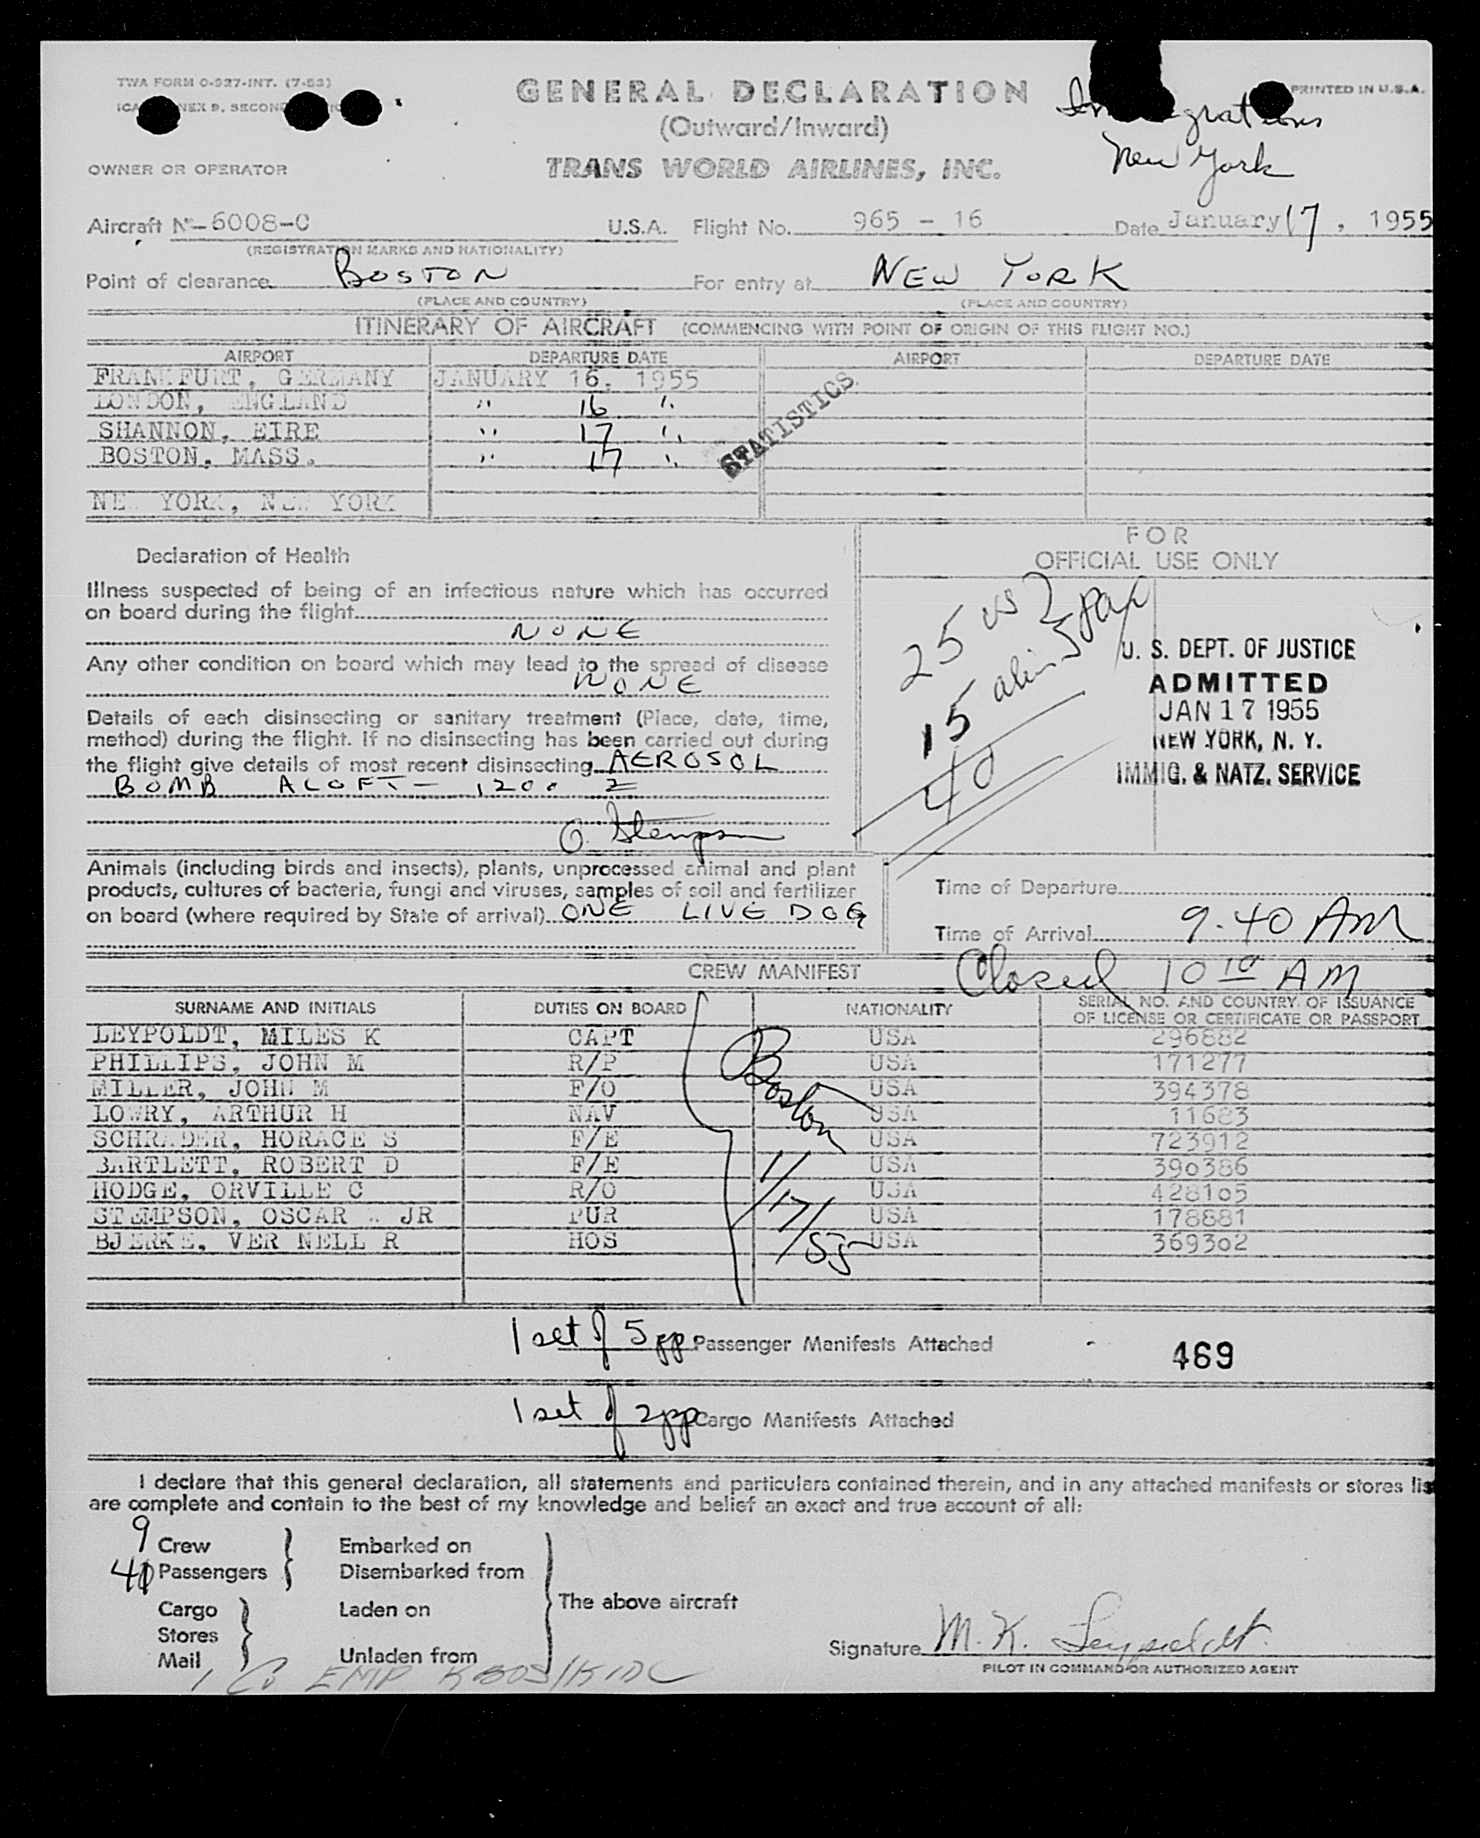 TWA FORM O-927-INT. (7-53)
GENERAL DECLARATION
PRINTED IN U.S.A.
(Outward/Inward)
New York
OWNER OR OPERATOR
TRANS WORLD AIRLINES, INC.
Aircraft No 6008-C U.S.A. Flight No. 965 - 16 Date January 17, 1955
(REGISTRATION MARKS AND NATIONALITY)
Point of clearance BOSTON For entry at NEW YORK
(PLACE AND COUNTRY) (PLACE AND COUNTRY)
ITINERARY OF AIRCRAFT (COMMENCING WITH POINT OF ORIGIN OF THIS FLIGHT NO.)
AIRPORT DEPARTURE DATE AIRPORT DEPARTURE DATE
FRANKFURT, GERMANY JANUARY 16, 1955
LONDON, ENGLAND " 16 "
SHANNON, EIRE " 17 "
BOSTON, MASS. " 17 "
STATISTICS
NEW YORK, NEW YORK
FOR
OFFICIAL USE ONLY
Declaration of Health
Illness suspected of being of an infectious nature which has occurred
on board during the flight
NONE
Any other condition on board which may lead to the spread of disease
NONE
Details of each disinsecting or sanitary treatment (Place, date, time,
method) during the flight. If no disinsecting has been carried out during
the flight give details of most recent disinsecting AEROSOL
BOMB ALOFT - 1200 Z
O. Stempson
25 us
15 alien
40
U. S. DEPT. OF JUSTICE
ADMITTED
JAN 17 1955
NEW YORK, N. Y.
IMMIG. & NATZ. SERVICE
Animals (including birds and insects), plants, unprocessed animal and plant
products, cultures of bacteria, fungi and viruses, samples of soil and fertilizer
on board (where required by State of arrival) ONE LIVE DOG
Time of Departure
Time of Arrival 9.40 AM
Closed 10 10 AM
CREW MANIFEST
SURNAME AND INITIALS DUTIES ON BOARD NATIONALITY SERIAL NO. AND COUNTRY OF ISSUANCE
OF LICENSE OR CERTIFICATE OR PASSPORT
LEYPOLDT, MILES K CAPT USA 296882
PHILLIPS, JOHN M R/P USA 171277
MILLER, JOHN M F/O USA 394378
LOWRY, ARTHUR H NAV USA 11683
SCHRADER, HORACE S F/E USA 723912
BARTLETT, ROBERT D F/E USA 390386
HODGE, ORVILLE C R/O USA 428105
STEMPSON, OSCAR JR PUR USA 178881
BJERKE, VER NELL R HOS USA 369302
Boston
1/17/55
1 set of 5 pp Passenger Manifests Attached
469
1 set of 2 pp Cargo Manifests Attached
I declare that this general declaration, all statements and particulars contained therein, and in any attached manifests or stores lis
are complete and contain to the best of my knowledge and belief an exact and true account of all:
9 Crew Embarked on
40 Passengers Disembarked from
The above aircraft
Cargo Laden on
Stores
Mail Unladen from
Signature M. K. Leypoldt
PILOT IN COMMAND OR AUTHORIZED AGENT
1 Co EMP KBOS/KIDL